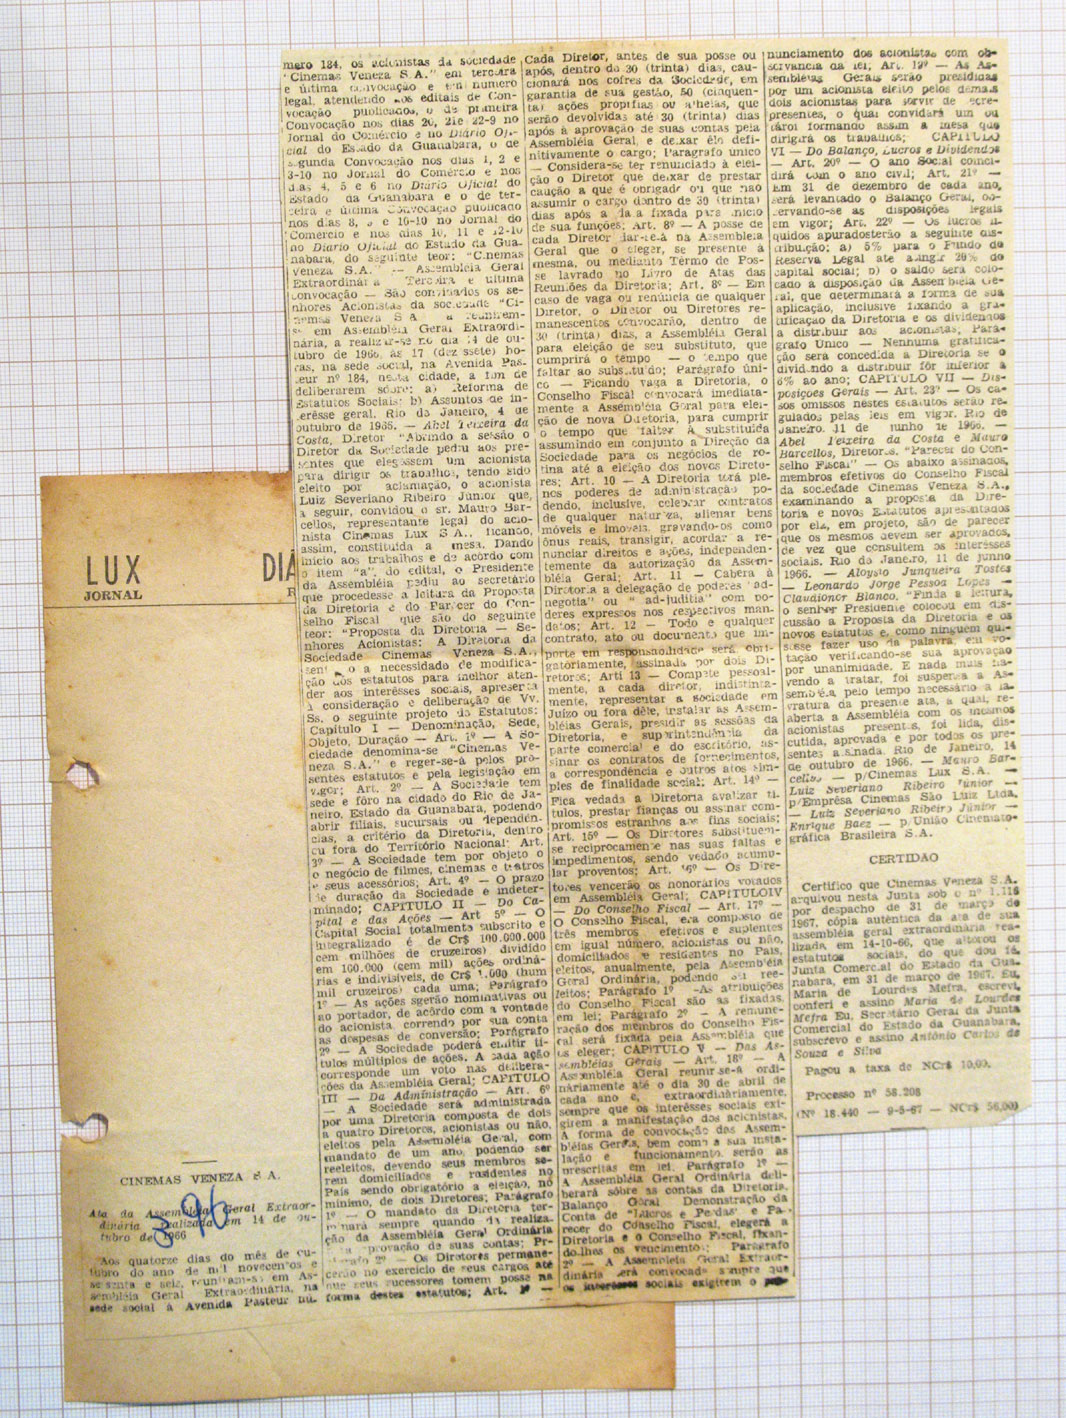 LUX DIÁ
JORNAL
CINEMAS VENEZA S A.
Ata da Assembléia Geral Extraor-
dinária realizada em 14 de ou-
tubro de 1966
396
Aos quatorze dias do mês de ou-
tubro do ano de mil novecentos e
sessenta e seis, reuniram-se em As-
sembléia Geral Extraordinária, na
sede social à Avenida Pasteur nú-
mero 184, os acionistas da sociedade
"Cinemas Veneza S A." em terceira
e última convocação e em número
legal, atendendo aos editais de Con-
vocação publicados, o de primeira
Convocação nos dias 20, 21e 22-9 no
Jornal do Comércio e no Diário Ofi-
cial do Estado da Guanabara, o de
segunda Convocação nos dias 1, 2 e
3-10 no Jornal do Comércio e nos
dias 4, 5 e 6 no Diário Oficial do
Estado da Guanabara e o de ter-
ceira e última Convocação publicado
nos dias 8, 9 e 16-10 no Jornal do
Comércio e nos dias 10, 11 e 12-10
no Diário Oficial do Estado da Gua-
nabara, do seguinte teor: "Cinemas
Veneza S A." — Assembléia Geral
Extraordinária Terceira e última
convocação — São convidados os se-
nhores Acionistas da sociedade "Ci-
nemas Veneza S A a reunirem-
se em Assembléia Geral Extraordi-
nária, a realizar-se no dia 14 de ou-
tubro de 1966, às 17 (dezessete) ho-
ras, na sede social, na Avenida Pas-
teur nº 184, nesta cidade, a fim de
deliberarem sôbre: a) Reforma de
Estatutos Sociais: b) Assuntos de in-
terêsse geral. Rio de Janeiro, 4 de
outubro de 1966. — Abel Teixeira da
Costa, Diretor "Abrindo a sessão o
Diretor da Sociedade pediu aos pre-
sentes que elegessem um acionista
para dirigir os trabalhos, tendo sido
eleito por aclamação, o acionista
Luiz Severiano Ribeiro Junior que,
a seguir, convidou o sr. Mauro Bar-
cellos, representante legal do acio-
nista Cinemas Lux S A., ficando,
assim, constituída a mesa. Dando
início aos trabalhos e de acôrdo com
o item "a", do edital, o Presidente
da Assembléia pediu ao secretário
que procedesse a leitura da Proposta
da Diretoria e do Parecer do Con-
selho Fiscal que são do seguinte
teor: "Proposta da Diretoria — Se-
nhores Acionistas: A Diretoria da
Sociedade Cinemas Veneza S.A.,
o a necessidade de modifica-
ção dos estatutos para melhor aten-
der aos interêsses sociais, apresenta
à consideração e deliberação de Vv.
Ss. o seguinte projeto de Estatutos:
Capítulo I — Denominação, Sede,
Objeto, Duração — Art. 1º — A So-
ciedade denomina-se "Cinemas Ve-
neza S.A." e reger-se-á pelos pre-
sentes estatutos e pela legislação em
vigor; Art. 2º — A Sociedade tem
sede e fôro na cidade do Rio de Ja-
neiro, Estado da Guanabara, podendo
abrir filiais, sucursais ou dependên-
cias, a critério da Diretoria, dentro
ou fora do Território Nacional Art.
3º — A Sociedade tem por objeto o
o negócio de filmes, cinemas e teatros
e seus acessórios; Art. 4º — O prazo
de duração da Sociedade é indeter-
minado; CAPITULO II — Do Ca-
pital e das Ações — Art 5º — O
Capital Social totalmente subscrito e
integralizado é de Cr$ 100.000.000
(cem milhões de cruzeiros) dividido
em 100.000 (cem mil) ações ordiná-
rias e indivisíveis, de Cr$ 1.000 (hum
mil cruzeiros) cada uma; Parágrafo
1º — As ações sgerão nominativas ou
ao portador, de acôrdo com a vontade
do acionista, correndo por sua conta
as despesas de conversão; Parágrafo
2º — A Sociedade poderá emitir tí-
tulos múltiplos de ações. A cada ação
corresponde um voto nas delibera-
ções da Assembléia Geral; CAPITULO
III — Da Administração — Art. 6º
— A Sociedade será administrada
por uma Diretoria composta de dois
a quatro Diretores, acionistas ou não,
eleitos pela Assembléia Geral, com
mandato de um ano, podendo ser
reeleitos, devendo seus membros se-
rem domiciliados e rasidentes no
País sendo obrigatório a eleição, no
mínimo, de dois Diretores; Parágrafo
1º — O mandato da Diretoria ter-
minará sempre quando da realiza-
ção da Assembléia Geral Ordinária
aprovação de suas contas; Pa-
rágrafo 2º — Os Diretores permane-
cerão no exercício de seus cargos até
que seus sucessores tomem posse na
forma destes estatutos; Art. 7º —
Cada Diretor, antes de sua posse ou
após, dentro de 30 (trinta) dias, cau-
cionará nos cofres da Sociedade, em
garantia de sua gestão, 50 (cinquen-
ta) ações próprias ou alheias, que
serão devolvidas até 30 (trinta) dias
após à aprovação de suas contas pela
Assembléia Geral, e deixar êle defi-
nitivamente o cargo; Parágrafo único
— Considera-se ter renunciado à elei-
ção o Diretor que deixar de prestar
caução a que é obrigado ou que não
assumir o cargo dentro de 30 (trinta)
dias após a data fixada para início
de sua funções; Art. 8º — A posse de
cada Diretor dar-se-á na Assembléia
Geral que o eleger, se presente à
mesma, ou mediante Têrmo de Pos-
se lavrado no Livro de Atas das
Reuniões da Diretoria; Art. 8º — Em
caso de vaga ou renúncia de qualquer
Diretor, o Diretor ou Diretores re-
manescentes convocarão, dentro de
30 (trinta) dias, a Assembléia Geral
para eleição de seu substituto, que
cumprirá o tempo — o tempo que
faltar ao substituído; Parágrafo úni-
co — Ficando vaga a Diretoria, o
Conselho Fiscal convocará imediata-
mente a Assembléia Geral para elei-
ção de nova Diretoria, para cumprir
o tempo que faltar à substituída
assumindo em conjunto a Direção da
Sociedade para os negócios de ro-
tina até a eleição dos novos Direto-
res; Art. 10 — A Diretoria terá ple-
nos poderes de administração po-
dendo, inclusive, celebrar contratos
de qualquer natureza, alienar bens
móveis e imóveis, gravando-os como
ônus reais, transigir, acordar a re-
nunciar direitos e ações, independen-
temente da autorização da Assem-
bléia Geral; Art. 11 — Caberá à
Diretoria a delegação de poderes "ad-
negotia" ou "ad-juditia" com po-
deres expressos nos respectivos man-
datos; Art. 12 — Todo e qualquer
contrato, ato ou documento que im-
porte em responsabilidade será obri-
gatòriamente, assinado por dois Di-
retores; Arti 13 — Compete pessoal-
mente, a cada diretor, indistinta-
mente, representar a sociedade em
Juízo ou fora dêle, instalar as Assem-
bléias Gerais, presidir as sessões da
Diretoria, e suprintendência da
parte comercial e do escritório, as-
sinar os contratos de fornecimentos,
a correspondência e outros atos sim-
ples de finalidade social; Art. 14º —
Fica vedada a Diretoria avalizar tí-
tulos, prestar fianças ou assinar com-
promissos estranhos aos fins sociais;
Art. 15º — Os Diretores substituem-
se reciprocamente nas suas faltas e
impedimentos, sendo vedado acumu-
lar proventos; Art. 16º — Os Dire-
tores vencerão os honorários votados
em Assembléia Geral; CAPITULOIV
— Do Conselho Fiscal — Art. 17º —
O Conselho Fiscal, era composto de
três membros efetivos e suplentes
em igual número, acionistas ou não,
domiciliados e residentes no País,
eleitos, anualmente, pela Assembléia
Geral Ordinária, podendo ser ree-
leitos; Parágrafo 1º -As atribuições
do Conselho Fiscal são as fixadas,
em lei; Parágrafo 2º — A remune-
ração dos membros do Conselho Fis-
cal será fixada pela Assembléia que
os eleger; CAPITULO V — Das As-
sembléias Gerais — Art. 18º — A
Assembléia Geral reunir-se-á ordi-
nàriamente até o dia 30 de abril de
cada ano e, extraordinàriamente,
sempre que os interêsses sociais exi-
girem a manifestação dos acionistas.
A forma de convocação das Assem-
bléias Gerais, bem como a sua insta-
lação e funcionamento serão as
prescritas em lei. Parágrafo 1º —
A Assembléia Geral Ordinária deli-
berará sôbre as contas da Diretoria,
Balanço Geral Demonstração da
Conta de "Lucros e Perdas" e Pa-
recer do Conselho Fiscal, elegerá a
Diretoria e o Conselho Fiscal, fixan-
do-lhes os vencimentos; Parágrafo
2º — A Assembléia Geral Extraor-
dinária será convocada sempre que
os interêsses sociais exigirem o
nunciamento dos acionistas com ob-
servância da lei; Art. 19º — As As-
sembléias Gerais serão presididas
por um acionista eleito pelos demais
dois acionistas para servir de secre-
presentes, o qual convidará um ou
tários formando assim a mesa que
dirigirá os trabalhos; CAPITULO
VI — Do Balanço, Lucros e Dividendos
— Art. 20º — O ano Social coinci-
dirá com o ano civil; Art. 21º —
Em 31 de dezembro de cada ano,
será levantado o Balanço Geral, ob-
servando-se as disposições legais
em vigor; Art. 22º — Os lucros lí-
quidos apuradosterão a seguinte dis-
tribuição; a) 5% para o Fundo de
Reserva Legal até atingir 20% do
capital social; b) o saldo será colo-
cado à disposição da Assembléia Ge-
ral, que determinará a forma de sua
aplicação, inclusive fixando a gra-
tificação da Diretoria e os dividendos
a distribuir aos acionistas; Pará-
grafo Único — Nenhuma gratifica-
ção será concedida à Diretoria se o
dividendo a distribuir fôr inferior a
6% ao ano; CAPITULO VII — Dis-
posições Gerais — Art. 23º — Os ca-
sos omissos nestes estatutos serão re-
gulados pelas leis em vigor. Rio de
Janeiro. 11 de junho de 1966. —
Abel Teixeira da Costa e Mauro
Barcellos, Diretores. "Parecer do Con-
selho Fiscal" — Os abaixo assinados,
membros efetivos do Conselho Fiscal
da sociedade Cinemas Veneza S.A.,
examinando a proposta da Dire-
toria e novos Estatutos apresentados
por ela, em projeto, são de parecer
que os mesmos devem ser aprovados,
de vez que consultem os interêsses
sociais. Rio de Janeiro, 11 de junho
1966. — Aloysio Junqueira Tostes
— Leonardo Jorge Pessoa Lopes —
Claudionor Bianco. "Finda a leitura,
o senhor Presidente colocou em dis-
cussão a Proposta da Diretoria e os
novos estatutos e, como ninguém qui-
sesse fazer uso da palavra, em vo-
tação verificando-se sua aprovação
por unanimidade. E nada mais ha-
vendo a tratar, foi suspensa a As-
sembléia pelo tempo necessário a la-
vratura da presente ata, a qual, re-
aberta a Assembléia com os mesmos
acionistas presentes, foi lida, dis-
cutida, aprovada e por todos os pre-
sentes assinada. Rio de Janeiro, 14
de outubro de 1966. — Mauro Bar-
cellos — p/Cinemas Lux S.A. —
Luiz Severiano Ribeiro Júnior —
p/Emprêsa Cinemas São Luiz Ltda.
— Luiz Severiano Ribeiro Júnior —
Enrique Baez — p/União Cinemato-
gráfica Brasileira S.A.
CERTIDAO
Certifico que Cinemas Veneza S.A.
arquivou nesta Junta sob o nº 1.116
por despacho de 31 de março de
1967, cópia autêntica da ata de sua
assembléia geral extraordinária rea-
lizada em 14-10-66, que alterou os
estatutos sociais, do que dou fé.
Junta Comercal do Estado da Gua-
nabara, em 31 de março de 1967. Eu,
Maria de Lourdes Mefra, escrevi,
conferi e assino Maria de Lourdes
Mefra Eu, Secretário Geral da Junta
Comercial do Estado da Guanabara,
subscrevo e assino Antônio Carlos de
Souza e Silva
Pagou a taxa de NCr$ 10,00.
Processo nº 58.208
(Nº 18.440 — 9-5-67 — NCr$ 56,00)